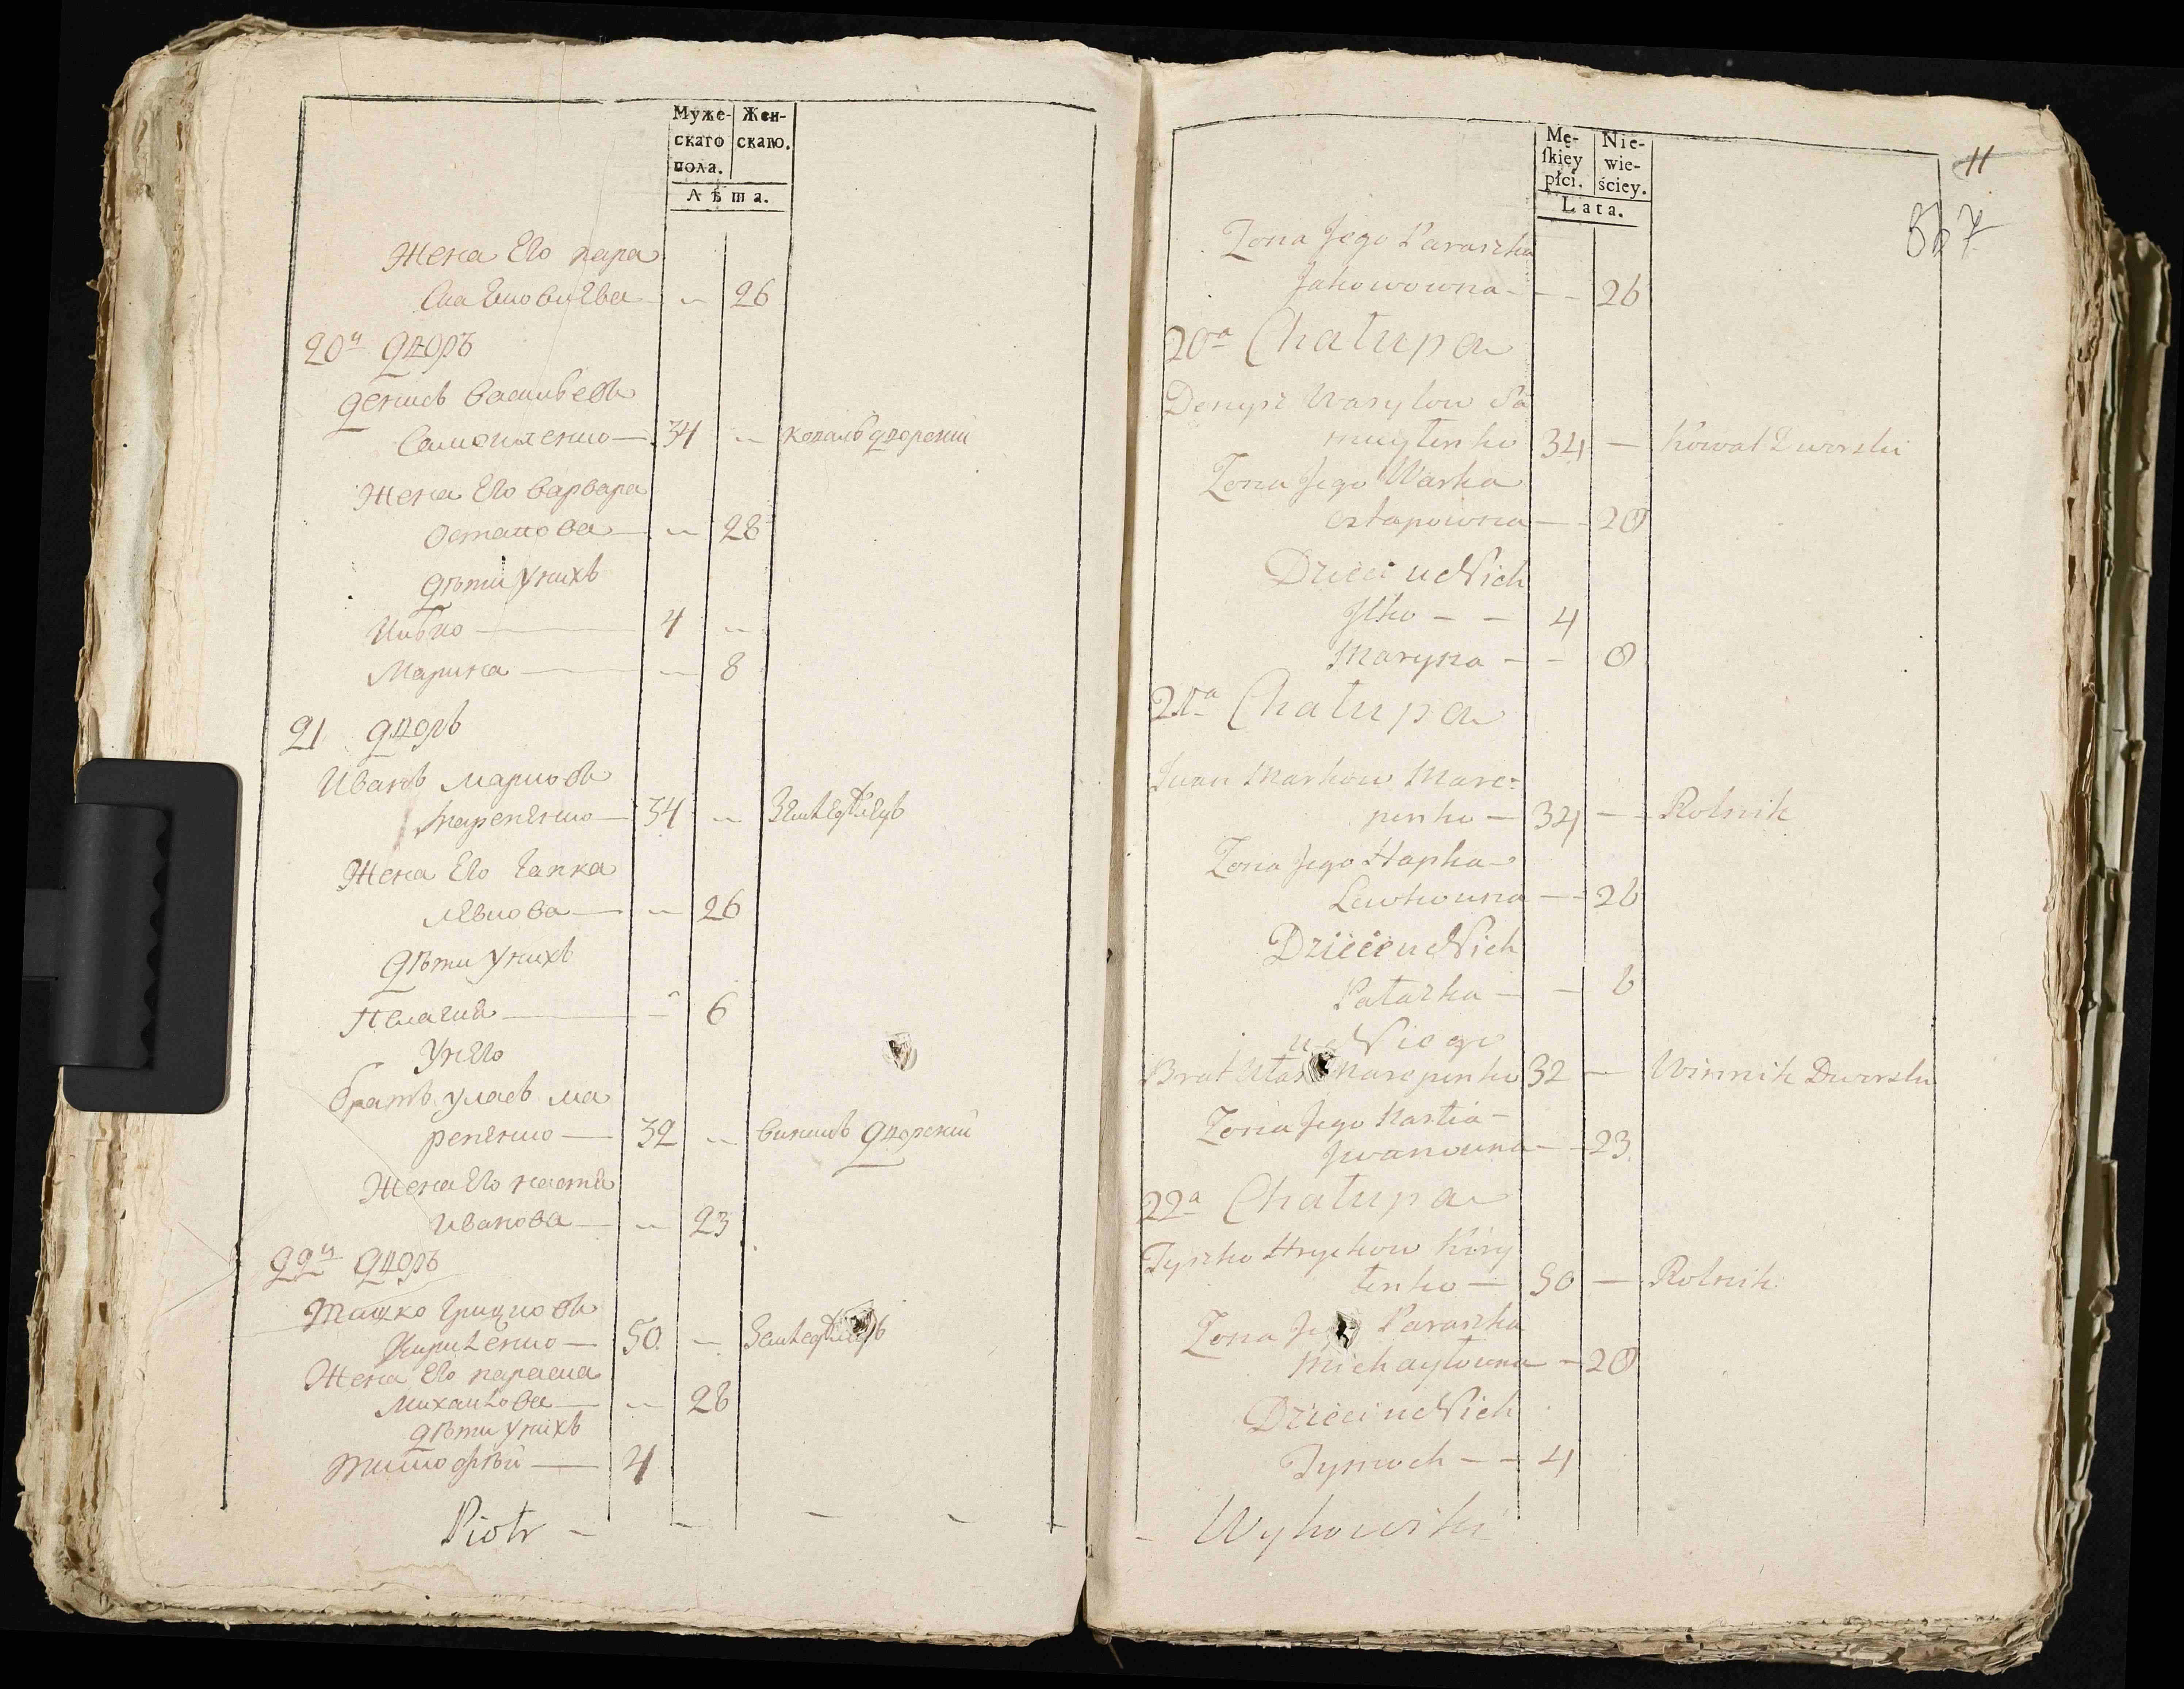 Муже- Жен-
скаго скаго.
пола.
Лѣта.
Жена Его пара
ска Яковлева — 26
20й дворъ
денисъ васильевъ
Самойленко — 34 — коваль дворскій
Жена Его варвара
остапова — 28
дѣти у нихъ
Илько — 4 —
Марина — 8
21 дворъ
Иванъ марковъ
марепенко — 34 — Земледѣлецъ
Жена Его гапка
левкова — 26
дѣти у нихъ
Пелагия — 6
У него
братъ уласъ ма
репенко — 32 — винникъ дворскій
Жена Его настя
иванова — 23
22й дворъ
Тишко грицковъ
Кириленко — 50 — Земледѣлецъ
Жена Его параска
михайлова — 28
дѣти у нихъ
тимофѣй — 4
Piotr — — — — —
Mę- Nie-
skiey wie-
płci. ściey.
Lata.
11
Żona Jego Paraszka
Jakowowna — — 26
20a Chałupa
Denysz Wasylow Sa
muylenko 34 — Kowal Dworski
Żona Jego Warka
osztapowna — — 28
Dzieci u Nich
Jlko — — 4
Maryna — — 8
21a Chałupa
Jwan Markow Mare-
penko — 34 — Rolnik
Żona Jego Hapka
Lewkowna — — 26
Dzieci u Nich
Pałaszka — — 6
u Niego
Brat Ułas Marepenko 32 — Winnik Dworski
Żona Jego Nastia
Jwanowna — — 23
22a Chałupa
Tyszko Hryckow Kiry
lenko — 50 — Rolnik
Żona Jego Paraszka
Michayłowna — 28
Dzieci u Nich
Tymoch — — 4
— Wyhowski